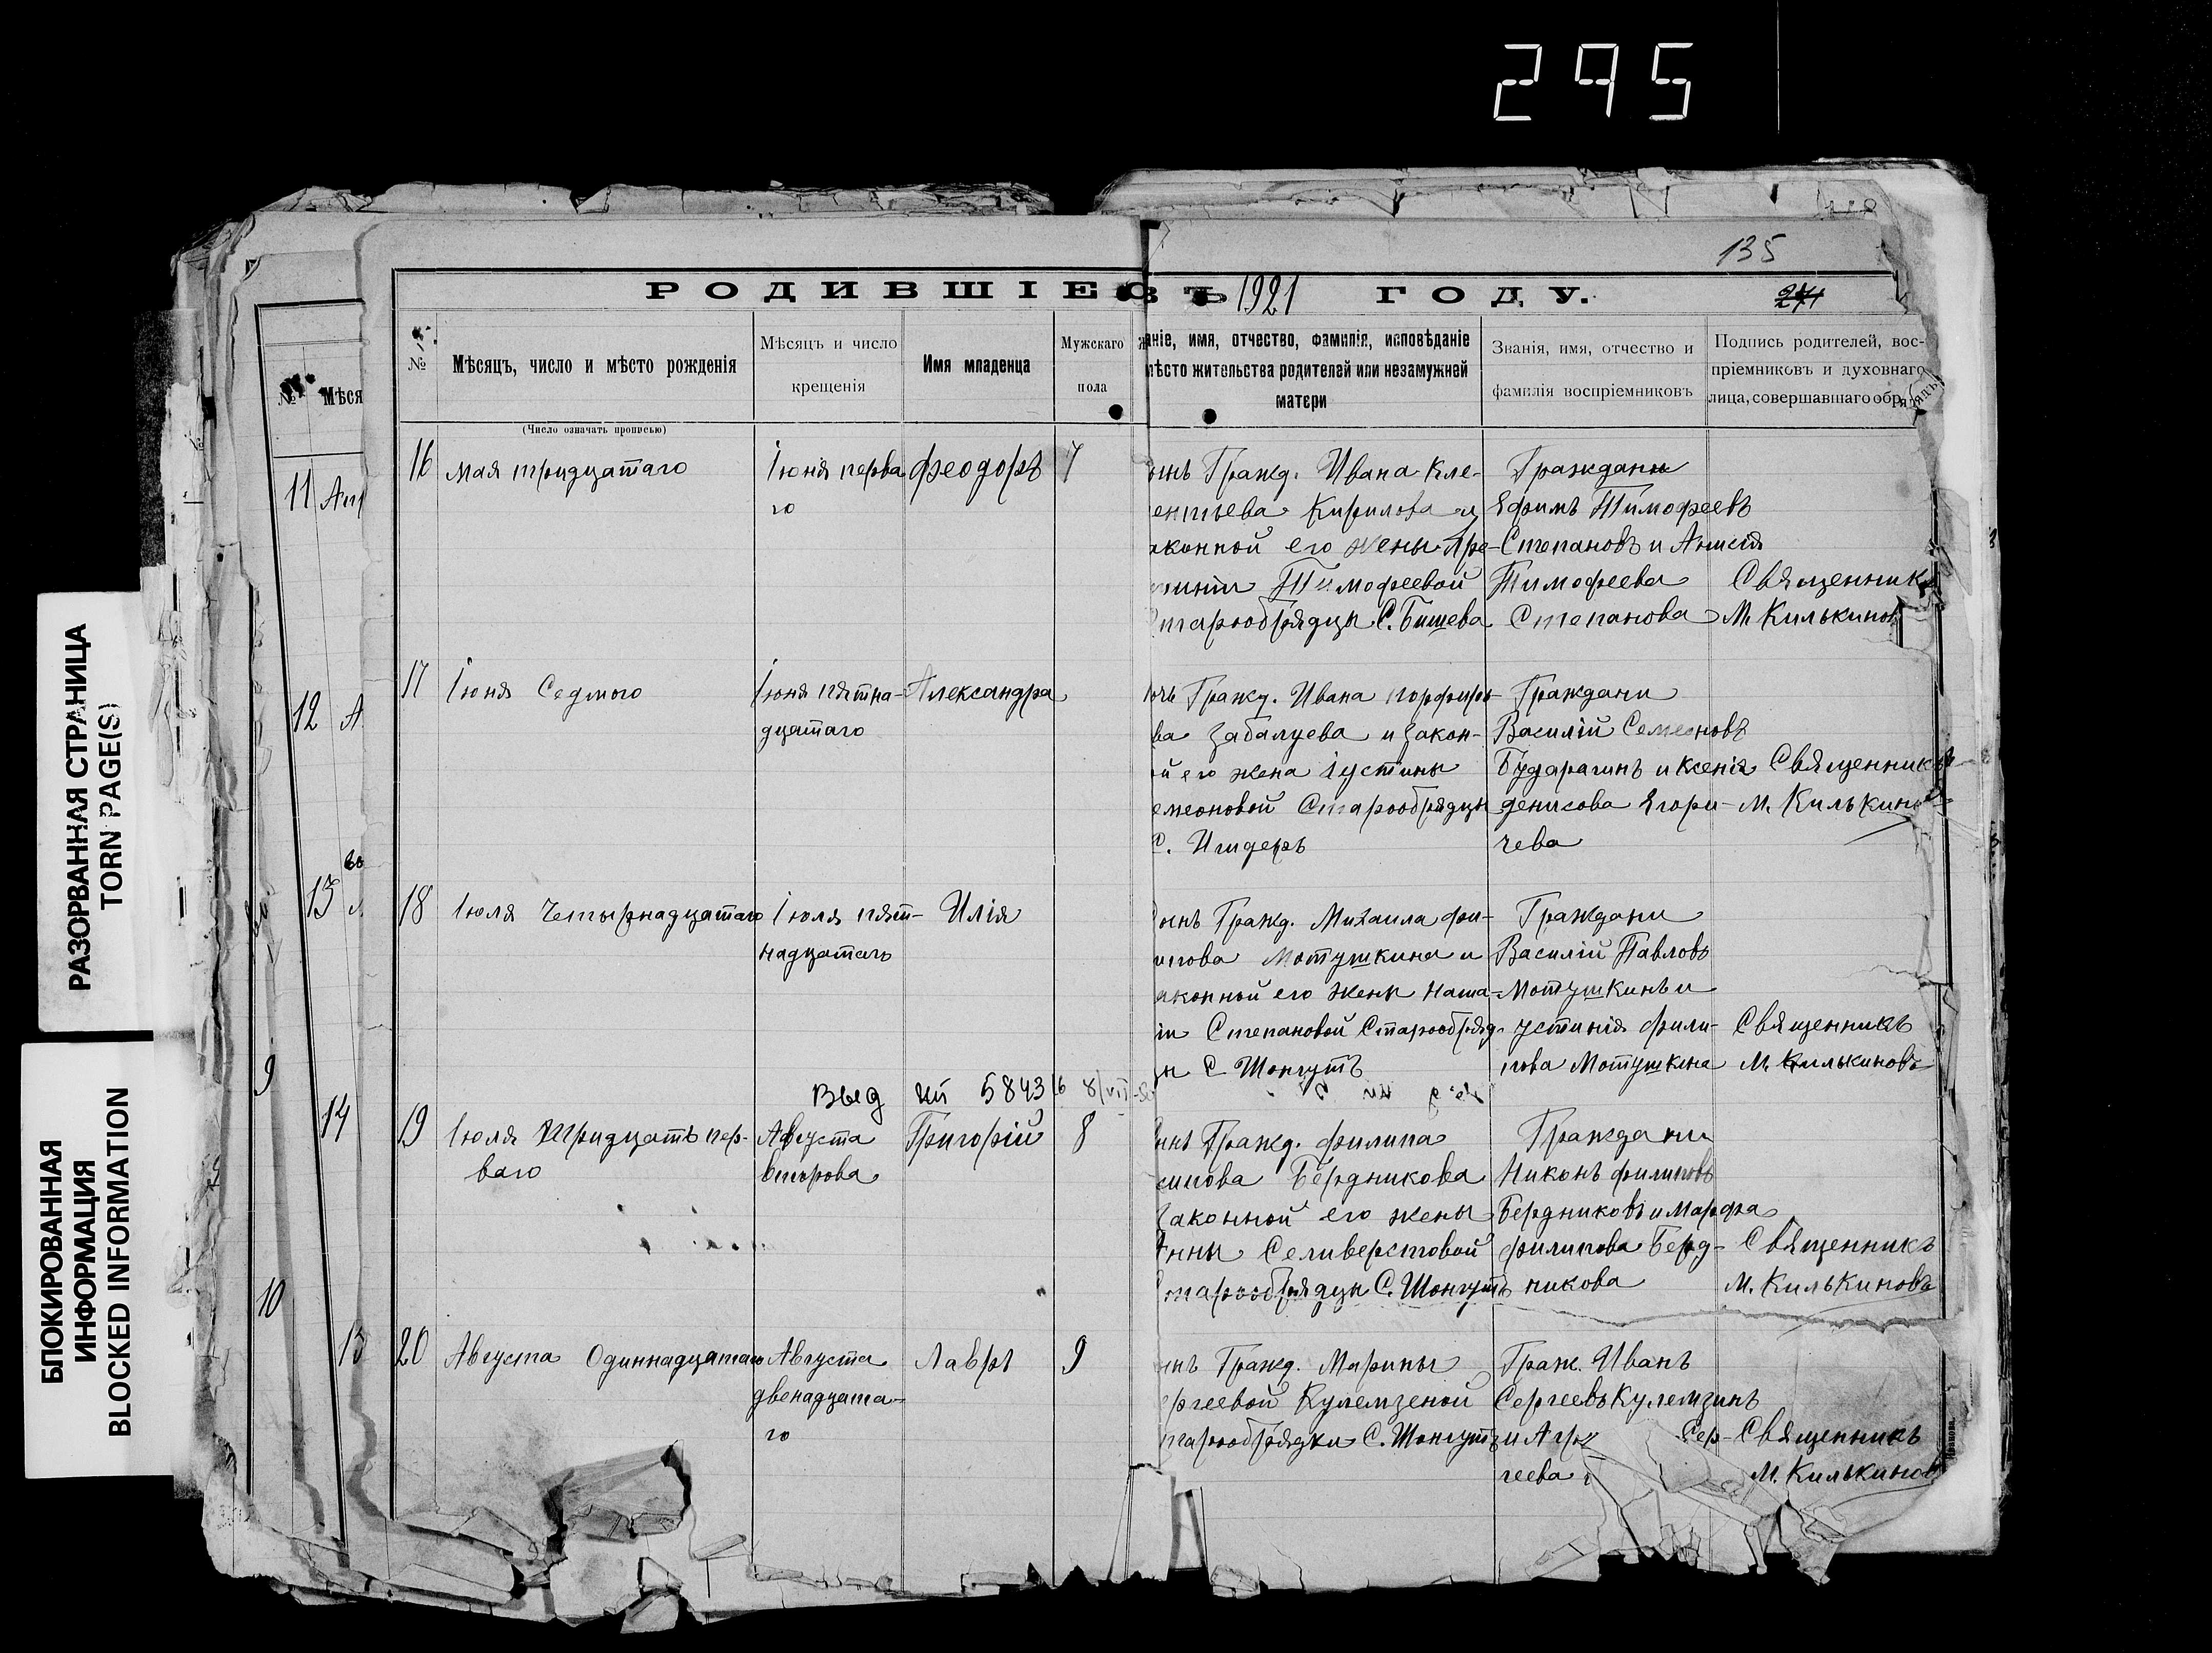 295
135
РОДИВШІЕСЪ 1921 ГОДУ.
271
№
Мѣсяцъ, число и мѣсто рожденія
(Число означать прописью)
Мѣсяцъ и число
крещенія
Имя младенца
Мужскаго
пола
аніе, имя, отчество, фамилія, исповѣданіе
ѣсто жительства родителей или незамужней
матери
Званія, имя, отчество и
фамилія воспріемниковъ
Подпись родителей, вос-
пріемниковъ и духовнаго
лица, совершавшаго обрядъ
№
Мѣся
11 Ап
12 А
13
14
15
9
10
16
мая тридцатаго
Іюня перва
го
Феодоръ
7
ынъ Гражд. Ивана Кле-
ентьева Кирилова и
аконной его жены
Тимофеевой
тарообрядцы С. Бишева
Граждани
Ефимъ Тимофеевъ
Степановъ и
Тимофеева
Степанова
Священникъ
М. Килькиновъ
17
Іюня Седмого
Іюня пятна-
дцатаго
Александра
очь Гражд. Ивана порфирь-
ва Забалуева и закон-
й его жена Іустины
емеоновой Старообрядцы
С. Ишдеръ
Граждани
Василій Семеновъ
Бударагинъ и Ксенія
денисова Ягори-
чева
Священникъ
М. Килькиновъ
18
Іюля Четырнадцатаго
Іюля пят-
надцатаго
Илія
сынъ Гражд. Михаила фи-
ипова Мотушкина и
аконной его жены Ната-
іи Степановой Старообряд-
цы С Шонгутъ
Граждани
Василій Павловъ
Мотушкинъ и
устинія фили-
пова Мотушкина
Священникъ
М. Килькиновъ
Выд ип 58436 8/VII
19
Іюля Тридцать пер-
ваго
Августа
второва
Григорій
8
ынъ Гражд. филипа
сипова Бердникова
Законной его жены
Анны Селиверстовой
Старообрядцы С. Шонгутъ
Граждани
Никонъ филиповъ
Бердниковъ и Марфа
филипова Берд-
никова
Священникъ
М. Килькиновъ
20
Августа Одиннадцатаго
Августа
двенадцата-
го
Лавръ
9
ынъ Гражд. Марины
ергеевой Кулемзеной
тарообрядки С. Шонгутъ
Граж. Иванъ
Сергеевъ Кулемзинъ
и Сер-
геева
Священникъ
М. Килькиновъ
РАЗОРВАННАЯ СТРАНИЦА
TORN PAGE(S)
БЛОКИРОВАННАЯ
ИНФОРМАЦИЯ
BLOCKED INFORMATION